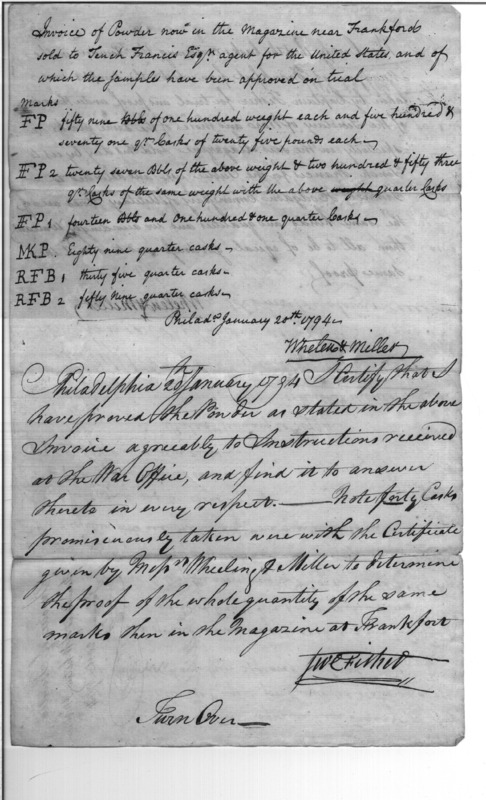 Invoice of Powder now in the Magazine near Frankford
sold to Tench Francis Esqr. agent for the United States, and of
which the samples have been approved on trial
Marks
FP fifty nine Bbls of one hundred weight each and five hundred &
seventy one qr. Casks of twenty five pounds each
FP 2 twenty seven Bbls of the above weight & two hundred & fifty three
qr. Casks of the same weight with the above weight quarter Casks
FP 1 fourteen Bbls and One hundred & one quarter Casks
MKP. Eighty nine quarter casks
RFB 1 thirty five quarter casks
RFB 2 fifty nine quarter casks
Philada. January 20th. 1794
Whelen & Miller
Philadelphia January 1794 I Certify that I
have proved the Powder as stated in the above
Invoice agreeably to Instructions received
at the War Office, and find it to answer
thereto in every respect. — Note forty Casks
promiscuously taken were with the Certificate
given by Messrs Wheeling & Miller to determine
the proof of the whole quantity of the same
marks then in the Magazine at Frankfort
Turn Over